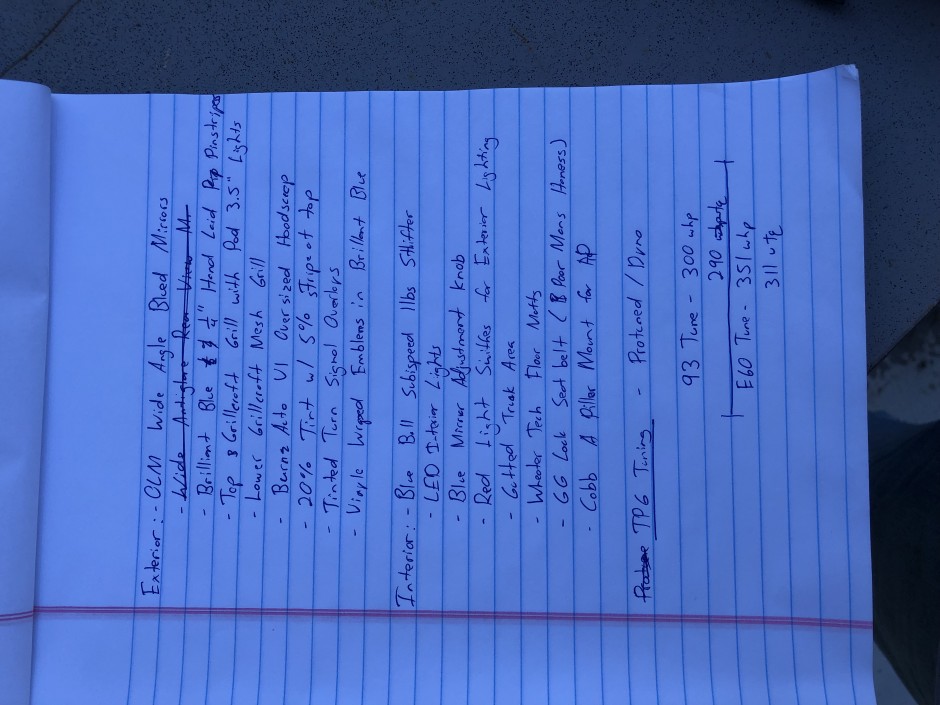 Exterior: - OLM Wide Angle Blued Mirrors
- Wide Antiglare Rear View M
- Brilliant Blue 1/4" Hand Laid Pinstripes
- Top & Grillcroft Grill with Pod 3.5" Lights
- Lower Grillcroft Mesh Grill
- Burnz Auto V1 Oversized Hoodscoop
- 20% Tint w/ 5% stripe at top
- Tinted Turn Signal Overlays
- Vinyle Wrpped Emblems in Brillant Blue
Interior: - Blue Ball Subispeed 1lbs Shifter
- LED Interior Lights
- Blue Mirror Adjustment Knob
- Red Light Swithes for Exterior Lighting
- Gutted Trunk Area
- Wheater Tech Floor Matts
- GG Lock Seat belt ( Poor Mans Harness)
- Cobb A Piller Mount for AP
TPG Tuning - Protuned / Dyno
93 Tune - 300 whp
290
E60 Tune - 351 whp
311 wtq